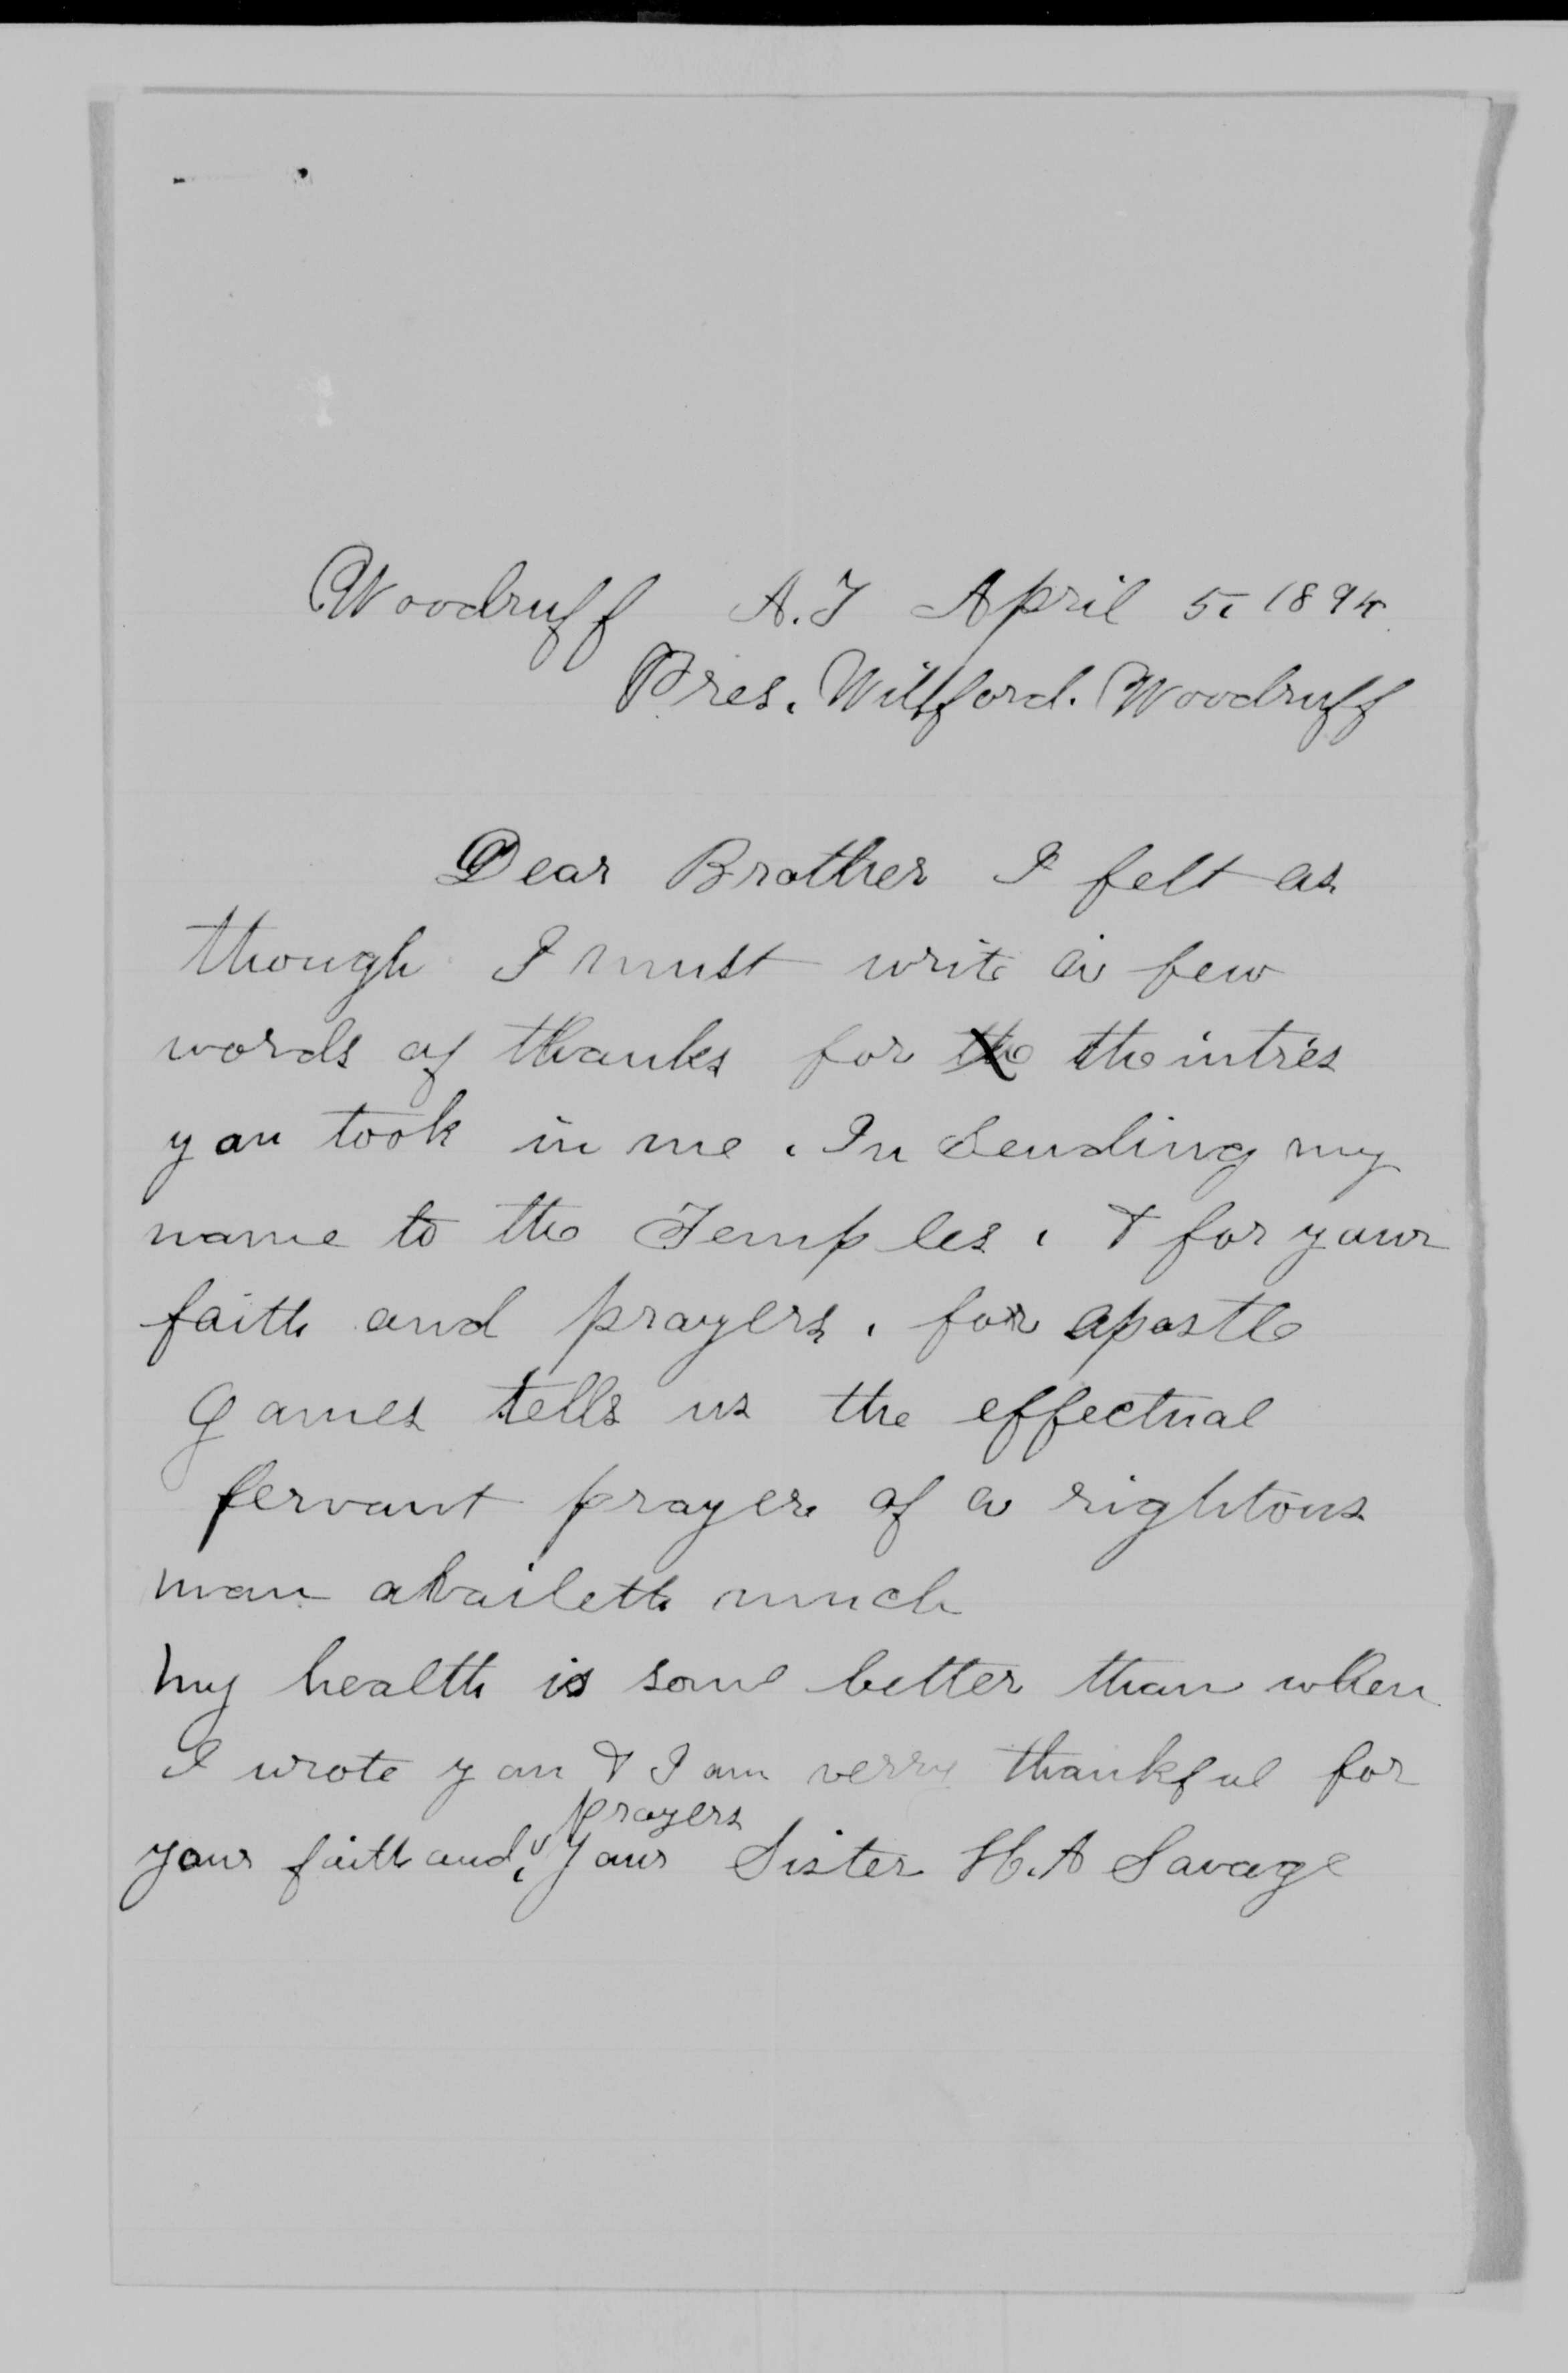 Woodruff A.T April 5, 1894
Pres. Willford. Woodruff
Dear Brother I felt as
though I must write a few
words of thanks for the the intres
you took in me. In sending my
name to the Temples. & for your
faith and prayers. for apostle
James tells us the effectual
fervant prayer of a rightous
man availeth much
my health is some better than when
I wrote you & I am verry thankful for
prayers
your faith and. Your Sister H. A Savage